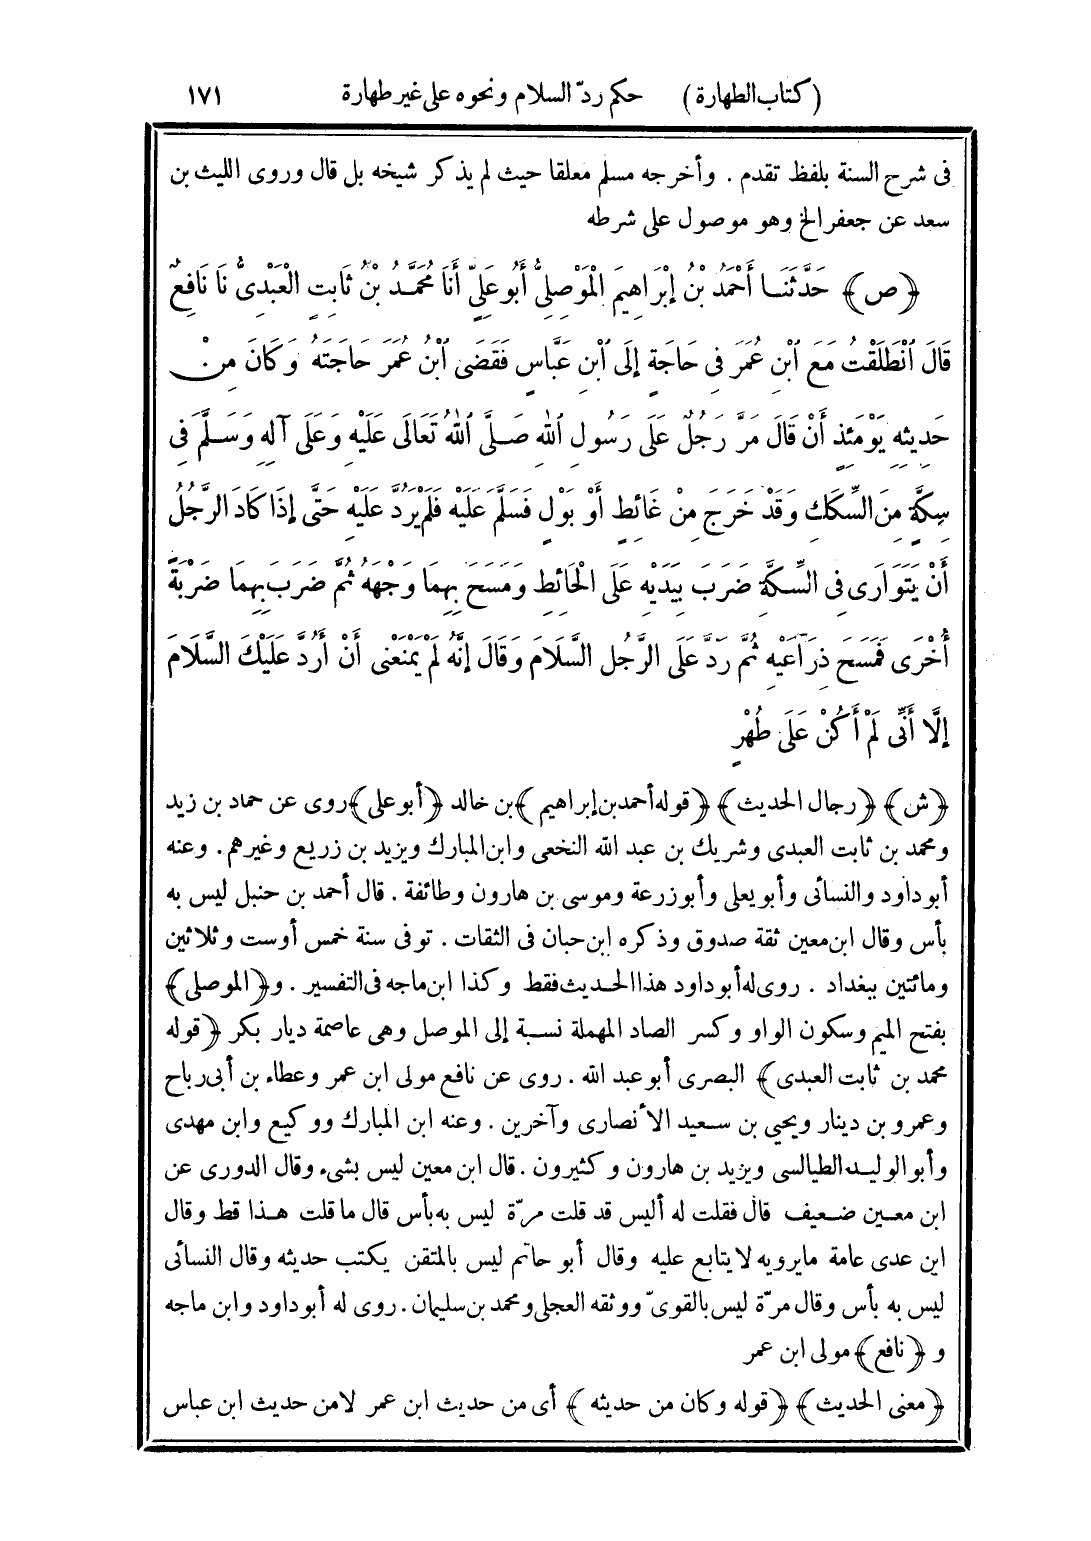 (كتاب الطهارة) حكم ردّ السلام ونحوه على غير طهارة ١٧١
فى شرح السنة بلفظ تقدم . وأخرجه مسلم معلقا حيث لم يذكر شيخه بل قال وروى الليث بن
سعد عن جعفر الخ وهو موصول على شرطه
﴿ص﴾ حَدَّثَنَا أَحْمَدُ بْنُ إِبْرَاهِيمَ الْمَوْصِلِىُّ أَبُو عَلِىٍّ أَنَا مُحَمَّدُ بْنُ ثَابِتٍ الْعَبْدِىُّ نَا نَافِعٌ
قَالَ ٱنْطَلَقْتُ مَعَ ٱبْنِ عُمَرَ فِى حَاجَةٍ إِلَى ٱبْنِ عَبَّاسٍ فَقَضَى ٱبْنُ عُمَرَ حَاجَتَهُ وَكَانَ مِنْ
حَدِيثِهِ يَوْمَئِذٍ أَنْ قَالَ مَرَّ رَجُلٌ عَلَى رَسُولِ ٱللهِ صَلَّى ٱللهُ تَعَالَى عَلَيْهِ وَعَلَى آلِهِ وَسَلَّمَ فِى
سِكَّةٍ مِنَ السِّكَكِ وَقَدْ خَرَجَ مِنْ غَائِطٍ أَوْ بَوْلٍ فَسَلَّمَ عَلَيْهِ فَلَمْ يَرُدَّ عَلَيْهِ حَتَّى إِذَا كَادَ الرَّجُلُ
أَنْ يَتَوَارَى فِى السِّكَّةِ ضَرَبَ بِيَدَيْهِ عَلَى الْحَائِطِ وَمَسَحَ بِهِمَا وَجْهَهُ ثُمَّ ضَرَبَ بِهِمَا ضَرْبَةً
أُخْرَى فَمَسَحَ ذِرَاعَيْهِ ثُمَّ رَدَّ عَلَى الرَّجُلِ السَّلَامَ وَقَالَ إِنَّهُ لَمْ يَمْنَعْنِى أَنْ أَرُدَّ عَلَيْكَ السَّلَامَ
إِلَّا أَنِّى لَمْ أَكُنْ عَلَى طُهْرٍ
﴿ش﴾ ﴿رجال الحديث﴾ ﴿قوله أحمد بن إبراهيم﴾ بن خالد ﴿أبو على﴾ روى عن حماد بن زيد
ومحمد بن ثابت العبدى وشريك بن عبد الله النخعى وابن المبارك ويزيد بن زريع وغيرهم . وعنه
أبو داود والنسائى وأبو يعلى وأبو زرعة وموسى بن هارون وطائفة . قال أحمد بن حنبل ليس به
بأس وقال ابن معين ثقة صدوق وذكره ابن حبان فى الثقات . توفى سنة خمس أوست وثلاثين
ومائتين ببغداد . روى له أبو داود هذا الحديث فقط وكذا ابن ماجه فى التفسير . و﴿الموصلى﴾
بفتح الميم وسكون الواو وكسر الصاد المهملة نسبة إلى الموصل وهى عاصمة ديار بكر ﴿قوله
محمد بن ثابت العبدى﴾ البصرى أبو عبد الله . روى عن نافع مولى ابن عمر وعطاء بن أبى رباح
وعمرو بن دينار ويحيى بن سعيد الأنصارى وآخرين . وعنه ابن المبارك ووكيع وابن مهدى
وأبو الوليد الطيالسى ويزيد بن هارون وكثيرون . قال ابن معين ليس بشىء وقال الدورى عن
ابن معين ضعيف قال فقلت له أليس قد قلت مرّة ليس به بأس قال ما قلت هذا قط وقال
ابن عدى عامة مايرويه لا يتابع عليه وقال أبو حاتم ليس بالمتقن يكتب حديثه وقال النسائى
ليس به بأس وقال مرّة ليس بالقوىّ ووثقه العجلى ومحمد بن سليمان . روى له أبو داود وابن ماجه
و ﴿نافع﴾ مولى ابن عمر
﴿معنى الحديث﴾ ﴿قوله وكان من حديثه﴾ أى من حديث ابن عمر لا من حديث ابن عباس